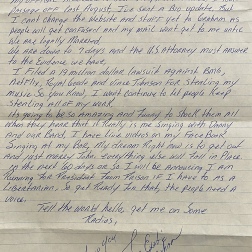 last August. I've sent a Big update. But
I can't change the Website and stuff yet to Graham as
people will get confused and my mail wont get to me until
We are down to 7 days and the U.S Attorney must answer
to the Evidence we have.
I Filed a 19 million dollar lawsuit Against
Netflix, Royal Goode and Vince Johnson For Stealing my
music. So you know, I won't continue to let people keep
Stealing all of my work.
It's going to be so Amazing and Funny to Shock them all
when they know that it really is me Singing with Danny
and our Band, I have live videos on my Face Book
Singing at my Bar, My dream Right now is to get out
and just make Music everything else will fall in Place.
In the next 60 days or so I will be announcing I am
Running For President From Prison I have to as a
Libertarian, So get Ready For that, the people need a
Voice.
Tell the world hello, get me on Some
Radios,